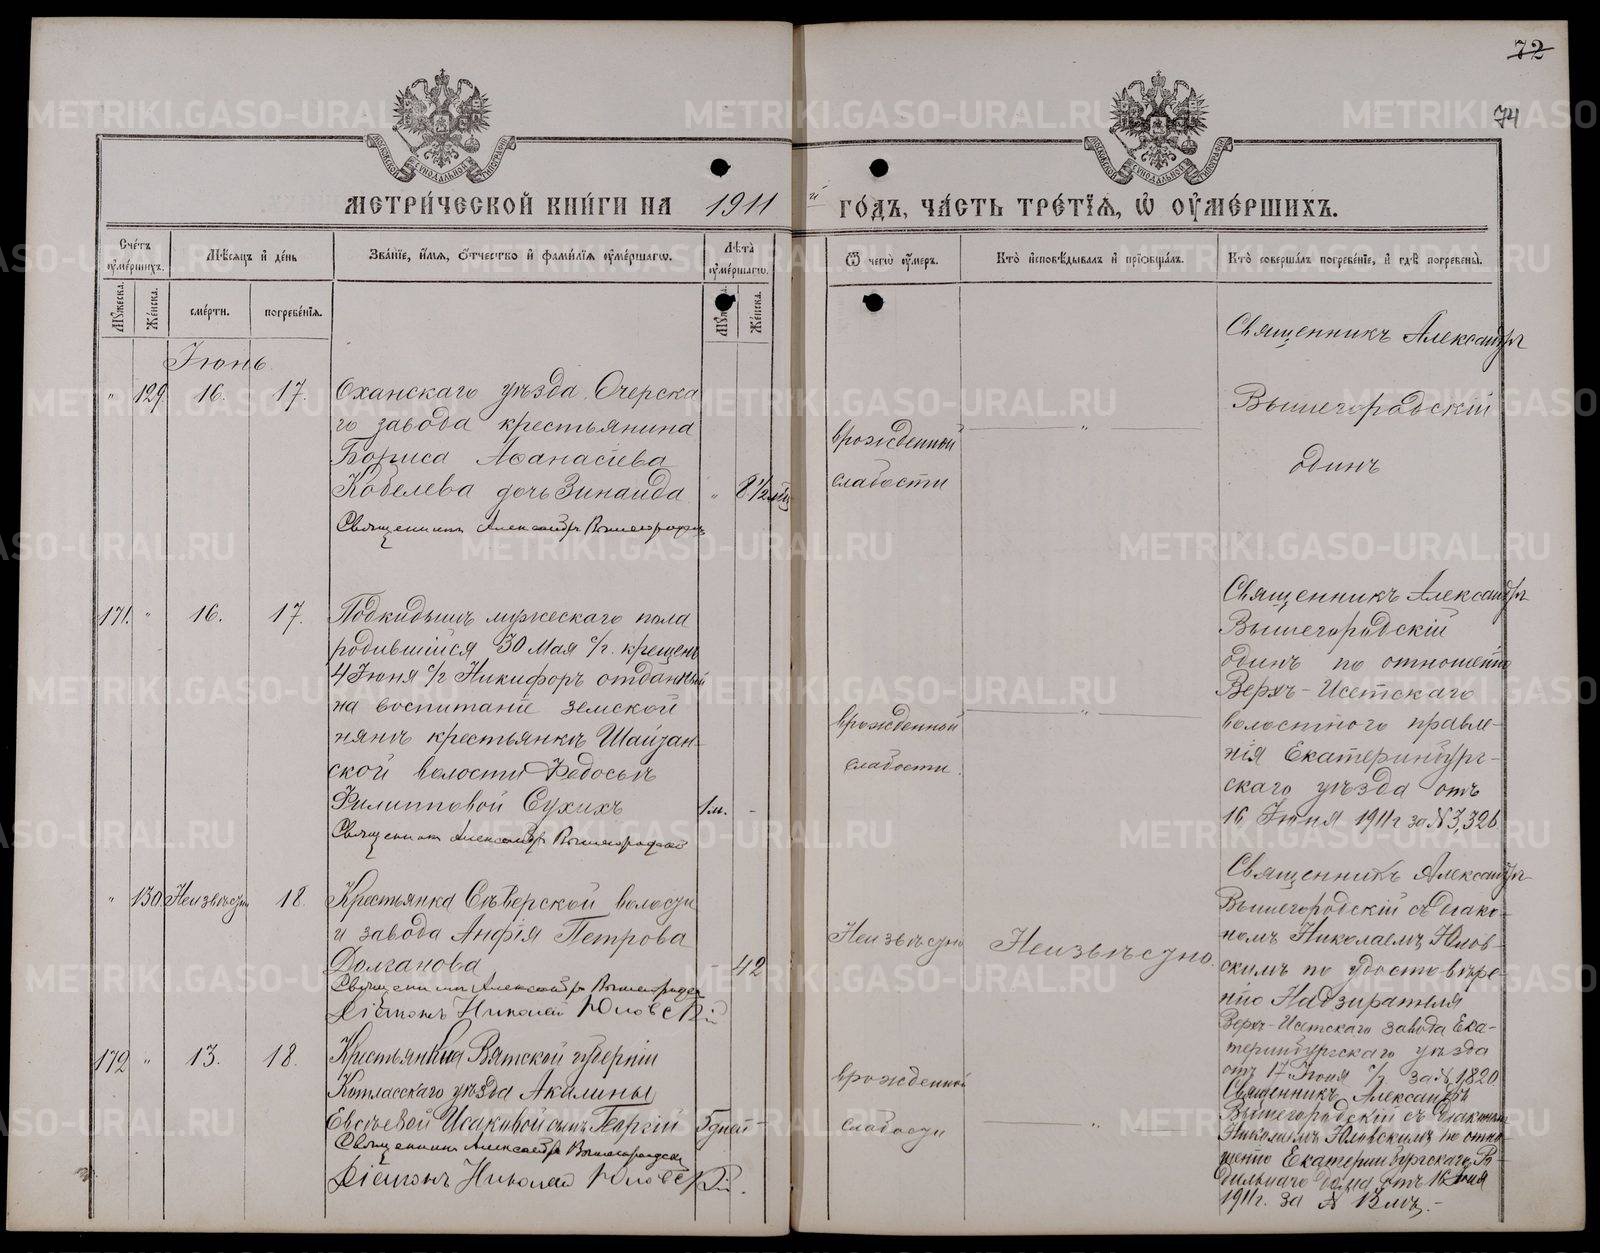 72
74
МЕТРИЧЕСКОЙ КНИГИ НА 1911 й ГОДЪ, ЧАСТЬ ТРЕТІЯ, Ѿ ОУМЕРШИХЪ.
Счетъ оумершихъ.
Мѣсяцъ и день
Званіе, имя, отчество и фамилія оумершагѡ.
Лѣта оумершагѡ.
Ѿ чегѡ оумеръ.
Кто исповѣдывалъ и пріобщалъ.
Кто совершалъ погребеніе, и гдѣ погребены.
Мужеска.
Женска.
смерти.
погребенія.
Мужеска.
Женска.
Іюнь
" 129 16. 17.
Оханскаго уѣзда Очерска
го завода крестьянина
Бориса Аѳанасіева
Кобелева дочь Зинаида " 8 1/2
Священникъ Александръ Вышегородскій
врожденной
слабости
"
Священникъ Александръ
Вышегородскій
одинъ
171. " 16. 17.
Подкидышъ мужескаго пола
родившійся 30 Мая с/г. крещенъ
4 Іюня с/г Никифоръ отданный
на воспитаніе земской
нянѣ крестьянкѣ Шайтан-
ской волости Ѳедосьѣ
Филипповой Сухихъ 1м. -
Священникъ Александръ Вышегородскій
врожденной
слабости.
"
Священникъ Александръ
Вышегородскій
одинъ по отношенію
Верхъ-Исетскаго
волостного правле-
нія Екатеринбург-
скаго уѣзда отъ
16 Іюня 1911г за № 3,326
" 130 Неизвѣстно 18.
Крестьянка Сѣверской волости
и завода Анфія Петрова
Долганова - 42
Священникъ Александръ Вышегородскій
Діаконъ Николай Юловскій
Неизвѣстно
Неизвѣстно.
Священникъ Александръ
Вышегородскій съ діако-
номъ Николаемъ Юлов-
скимъ по удостовѣре-
нію Надзирателя
Верхъ-Исетскаго завода Ека-
теринбургскаго уѣзда
отъ 17 Іюня с/г за № 1820
172 " 13. 18.
Крестьянки Вятской губерніи
Котласскаго уѣзда Акилины
Евсѣевой Исаковой сынъ Георгій 5 дней -
Священникъ Александръ Вышегородскій
Діаконъ Николай Юловскій.
врожденной
слабости
"
Священникъ Александръ
Вышегородскій съ діакономъ
Николаемъ Юловскимъ по отно-
шенію Екатеринбургскаго Ро-
дильнаго дома отъ 16 Іюня
1911г. за №
METRIKI.GASO-URAL.RU